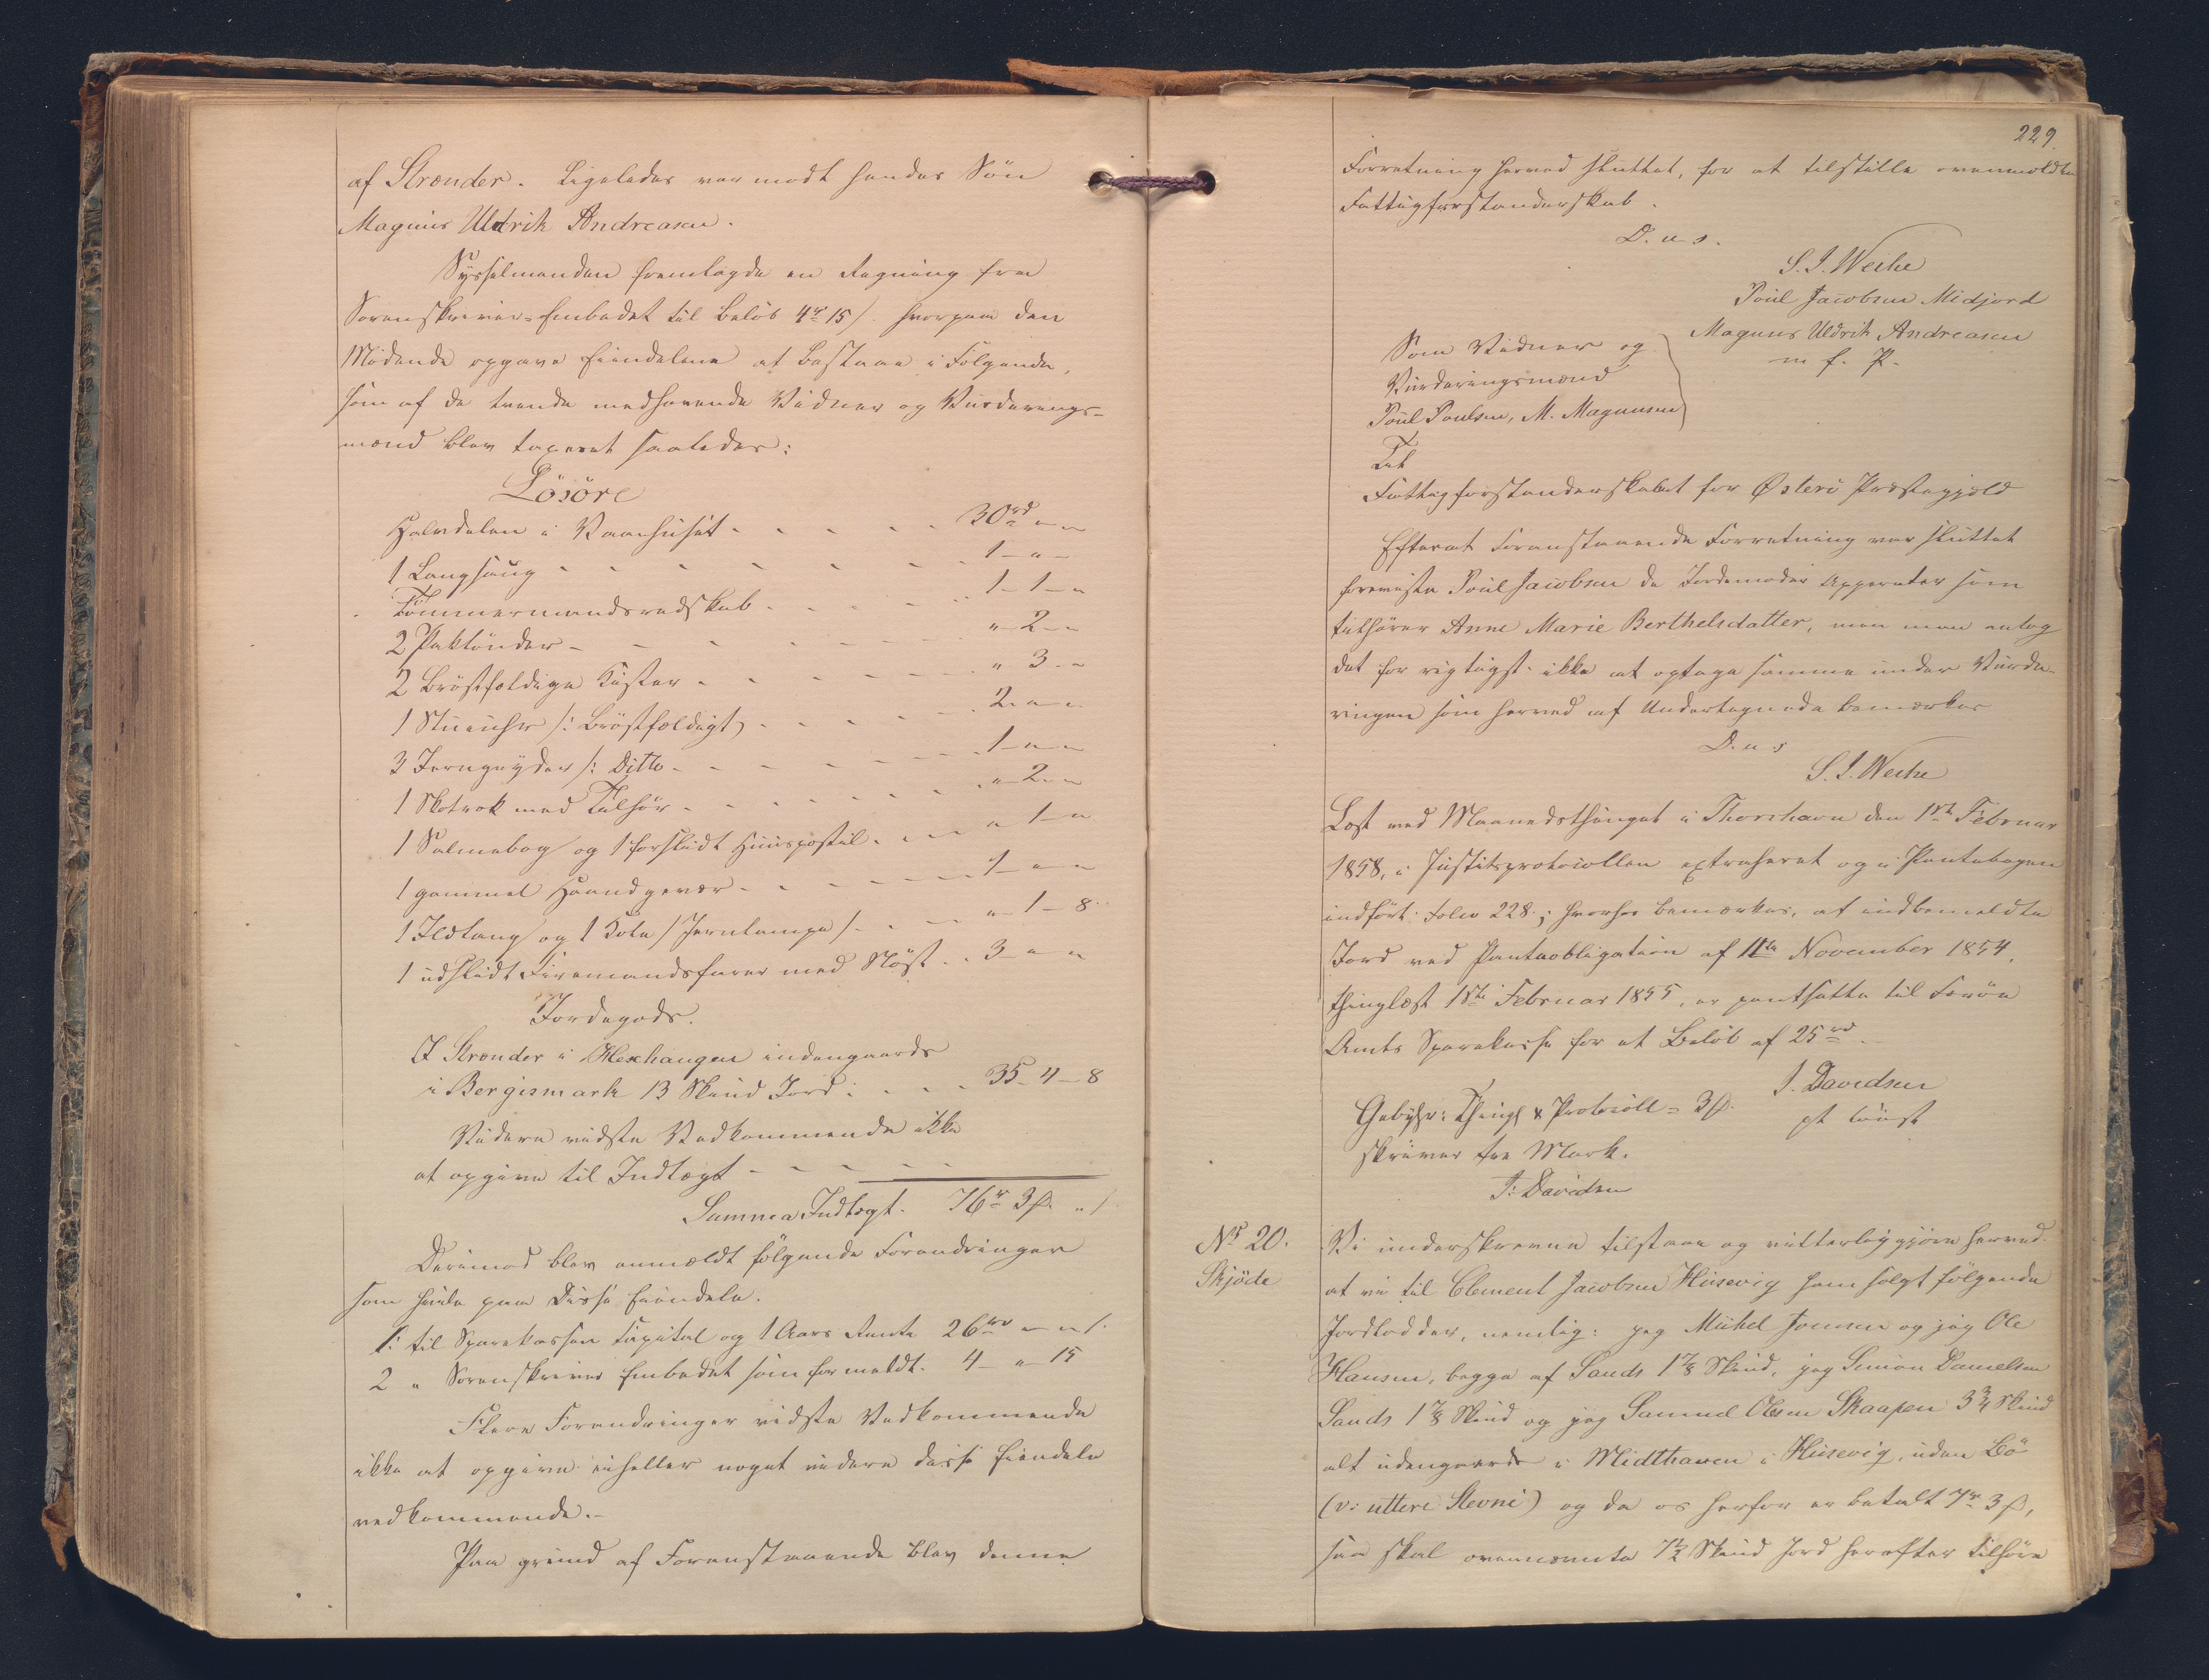 af Strænder. Ligeledes var mødt hendes Sön
Magnus Uldrik Andreasen.
Sysselmanden fremlagde en Regning fra
Sorenskriver-Embedet til Belöb 4rd 15 /. hvorpaa den
Mödende opgave Eiendelene at bestaae i Fölgende,
som af de tvende medhavende Vidner og Vurderings-
mænd blev taxeret saaledes:
Lösöre
Halvdelen i Vaanhuset - - - - - 30rd " "
1 Langseng - - - - - - 1 - " -
Tömmermandsredskab - - - - 1 - 1 - "
2 Paktönder - - - - - " 2 - "
2 Bröstfældige Kister - - - - - " 3 - "
1 Stueuhr /: Bröstfældigt) - - - - 2 - " -
3 Jerngryder /: Ditto - - - - - 1 - " "
1 Skotrok med Tilhör - - - - - " 2 - "
1 Salmebog og 1 forslidt Huuspostil - - - " 1 - "
1 gammel Haandgevær - - - - 1 - " "
1 Ildtang og 1 Kola / Jernlampe / - - - " 1 - 8
1 udslidt Firemandsfarer med Nöst - - 3 - " "
Jordegods.
I Strænder i Hexhaugen indengaards
i Bergismark 13 Skind Jord: - - - 35 - 4 - 8
Videre vidste Vedkommende ikke
at opgive til Indtægt - - - - -
Summa Indtægt - 76rd 3 ß. " /.
Derimod blev anmældt fölgende Forandringer
som hvile paa Disse Eiendele.
1: til Sparekassen Capital og 1 Aars Rente 26rd " " /.
2 " Sorenskriver Embedet som formeldt. 4 - " 15
Flere Forandringer vidste Vedkommende
ikke at opgive eiheller noget videre disse Eiendele
vedkommende.-
Paa grund af Foranstaaende blev denne
229.
Forretning herved sluttet, for at tilstille ovenmeldte
Fattigforstanderskab.
D. u. s.
S. J. Weihe
Poul Jacobsen Midjord
Magnus Uldrik Andreasen
m f. P.
Som Vidner og
Vurderingsmænd
Poul Poulsen, M. Magnusen
Til
Fattigforstanderskabet for Østerö Præstegjæld
Efterat Foranstaaende Forretning var sluttet
foreviste Poul Jacobsen de Jordemoder Apperater som
tilhörer Anne Marie Berthelsdatter, men man antog
det for rigtigst ikke at optage samme under Vurde-
ringen som herved af Undertegnede bemærkes
D. u. s
S. J. Weihe
Læst ved Maanedsthinget i Thorshavn den 1ste Februar
1858, i Justitsprotocollen extraheret og i Pantebogen
indfört: Folio 228; hvorhos bemærkes, at indbemeldte
Jord ved Panteobligation af 11te November 1854,
thinglæst 1ste Februar 1855, er pantsatte til Færöe
Amts Sparekasse for et Belöb af 25rd
J. Davidsen
pt const
Gebyhr: Thingl & Protocoll = 3 ß.
skriver tre Mark.
J: Davidsen
No 20.
Skjöde
Vi underskrevne tilstaae og vitterliggjöre herved
at vi til Clement Jacobsen Husevig have solgt fölgende
Jordlodder, nemlig: jeg Michel Joensen og jeg Ole
Hansen, begge af Sands 1 7/8 Skind, jeg Simon Danielsen
Sands 1 7/8 Skind og jeg Samuel Olesen Skaapen 3 3/4 Skind
alt udengaards i Midthaven i Husevig, uden Bö
(v: uttere Stevni) og da os herfor er betalt 7rd 3 ß,
saa skal ovennævnte 7 1/2 Skind Jord herefter tilhöre